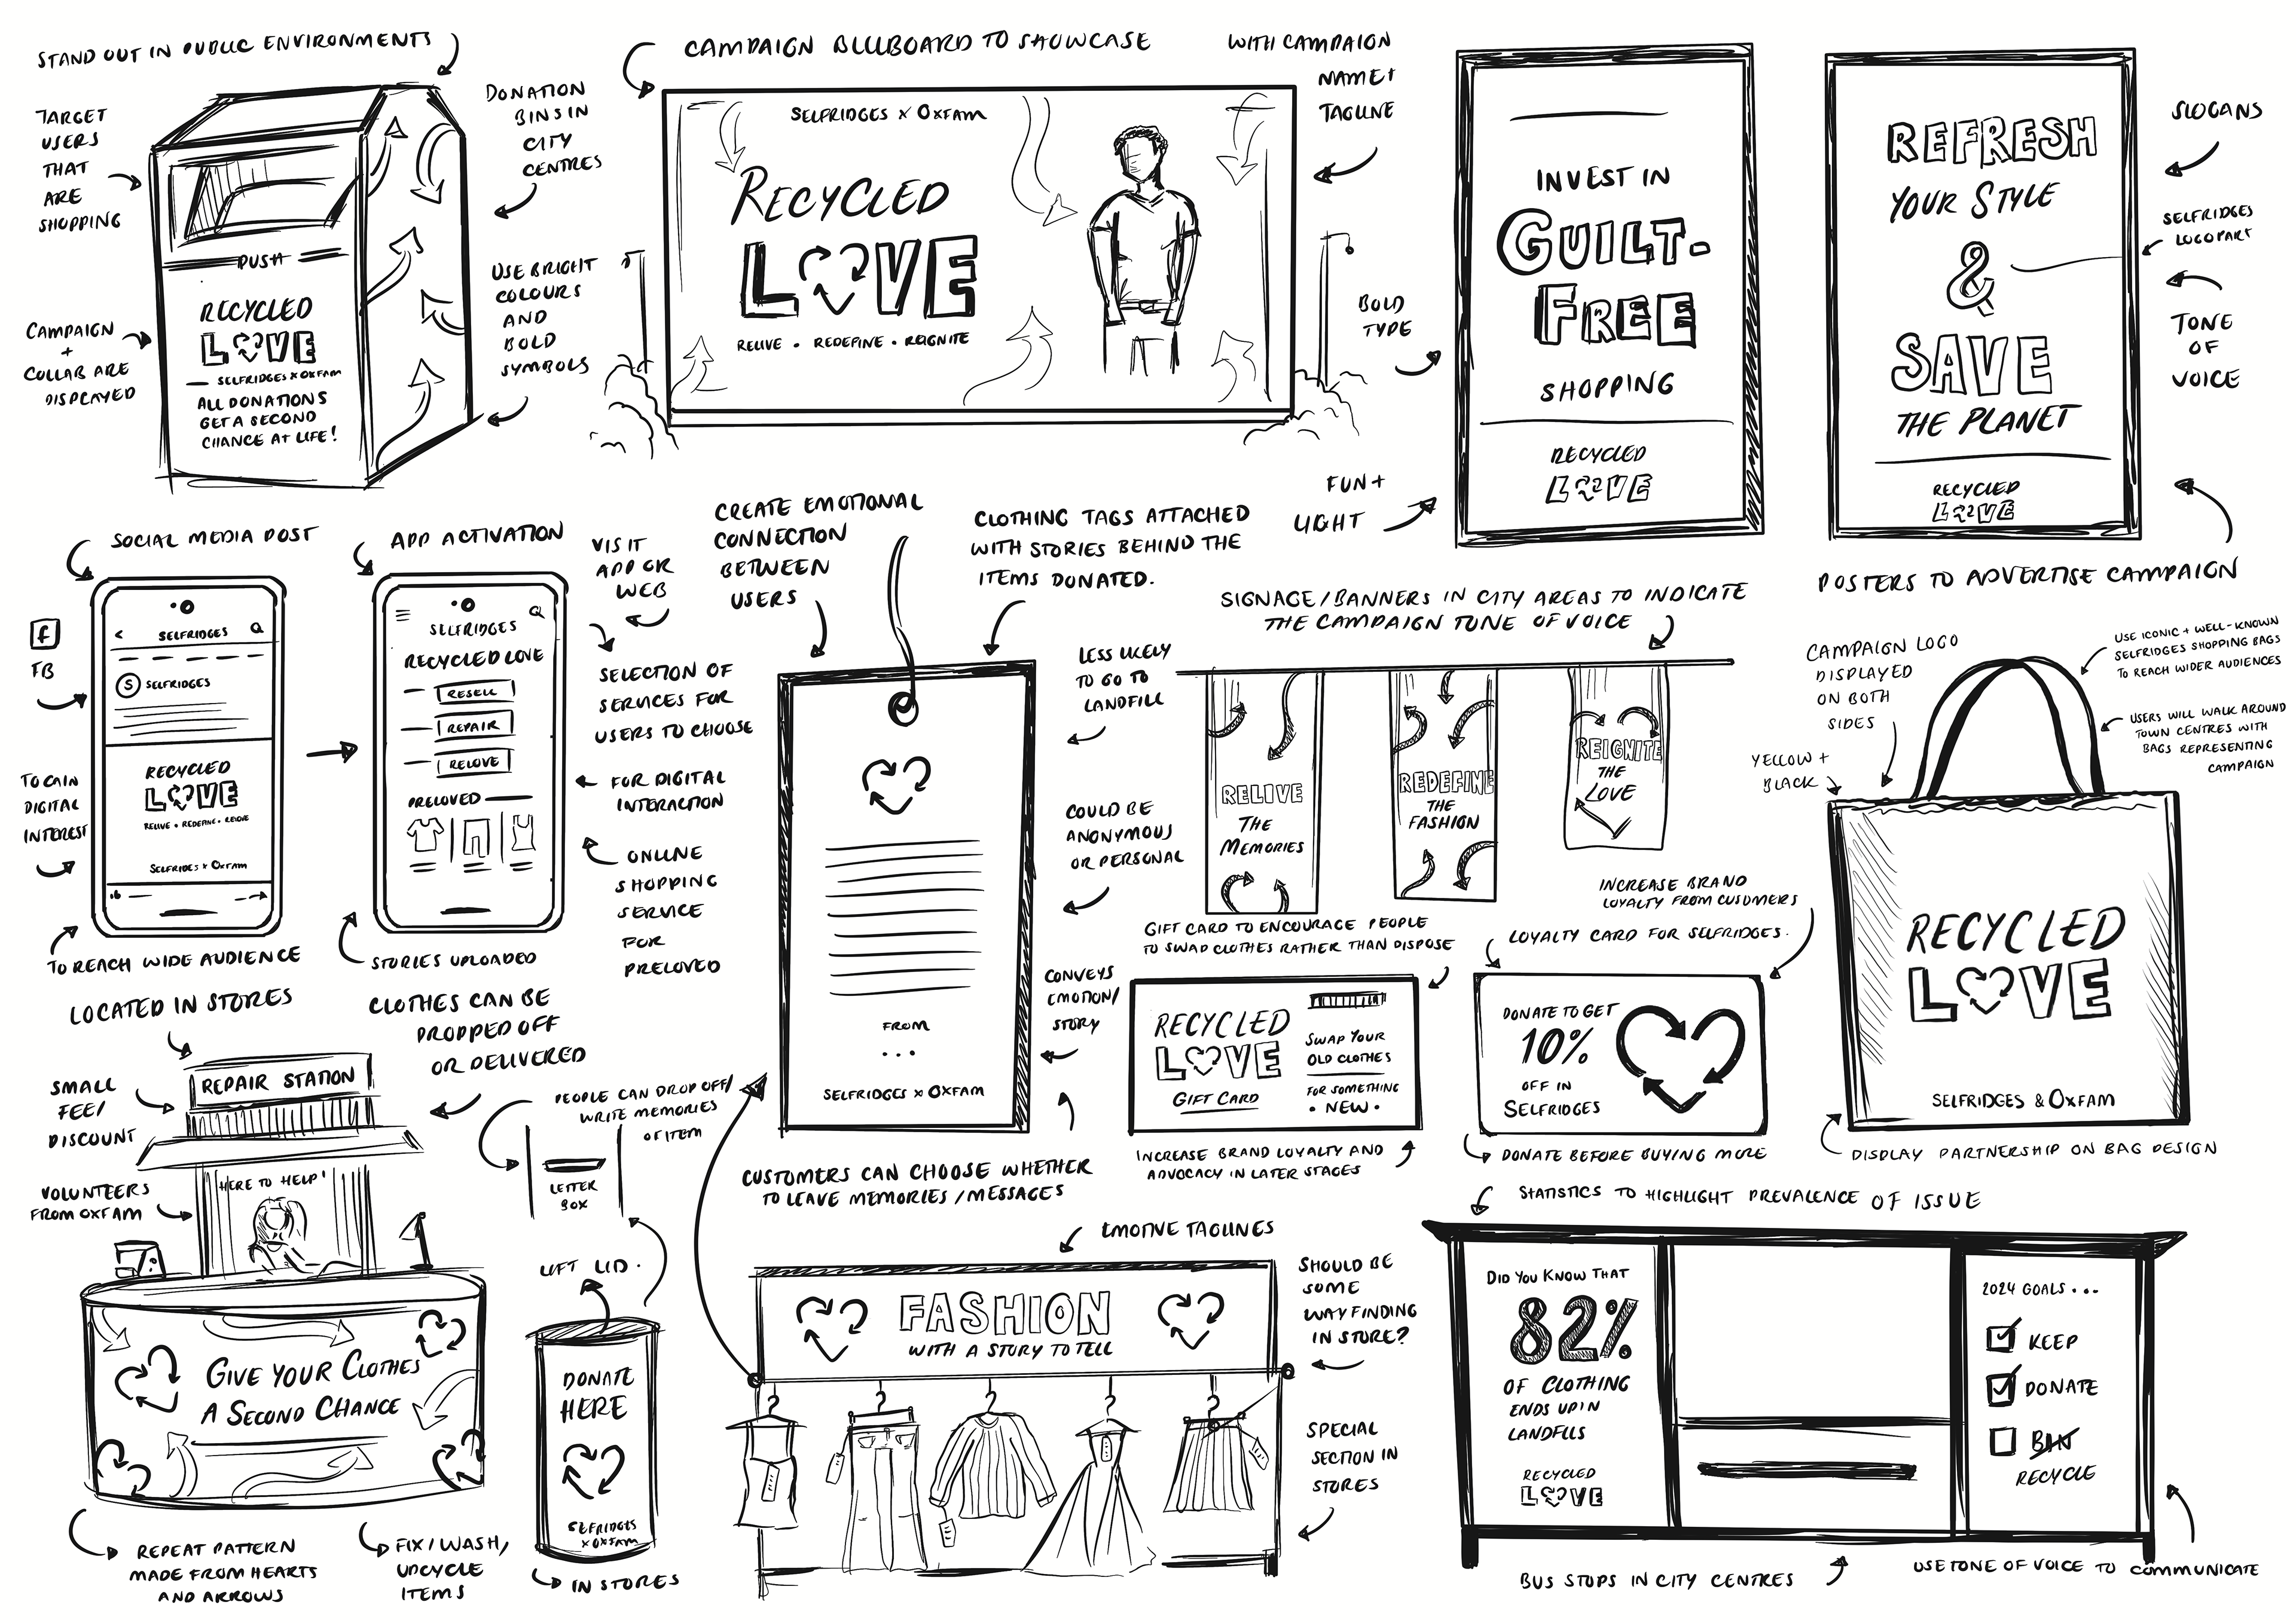 STAND OUT IN PUBLIC ENVIRONMENTS
TARGET
USERS
THAT
ARE
SHOPPING
CAMPAIGN
+
COLLAB ARE
DISPLAYED
PUSH
RECYCLED
LOVE
SELFRIDGES X OXFAM
ALL DONATIONS
GET A SECOND
CHANCE AT LIFE!
DONATION
BINS IN
CITY
CENTRES
USE BRIGHT
COLOURS
AND
BOLD
SYMBOLS
CAMPAIGN BILLBOARD TO SHOWCASE
WITH CAMPAIGN
NAME +
TAGLINE
SELFRIDGES X OXFAM
RECYCLED
LOVE
RELIVE • REDEFINE • REIGNITE
BOLD
TYPE
FUN +
LIGHT
INVEST IN
GUILT-
FREE
SHOPPING
RECYCLED
LOVE
REFRESH
YOUR STYLE
&
SAVE
THE PLANET
RECYCLED
LOVE
SLOGANS
SELFRIDGES
LOGO PART
TONE
OF
VOICE
POSTERS TO ADVERTISE CAMPAIGN
SOCIAL MEDIA POST
f
FB
TO GAIN
DIGITAL
INTEREST
< SELFRIDGES
S SELFRIDGES
RECYCLED
LOVE
RELIVE • REDEFINE • RELOVE
SELFRIDES X OXFAM
TO REACH WIDE AUDIENCE
APP ACTIVATION
SELFRIDGES
RECYCLED LOVE
RESELL
REPAIR
RELOVE
PRELOVED
STORIES UPLOADED
VISIT
APP OR
WEB
SELECTION OF
SERVICES FOR
USERS TO CHOOSE
FOR DIGITAL
INTERACTION
ONLINE
SHOPPING
SERVICE
FOR
PRELOVED
CREATE EMOTIONAL
CONNECTION
BETWEEN
USERS
CLOTHING TAGS ATTACHED
WITH STORIES BEHIND THE
ITEMS DONATED.
FROM
...
SELFRIDGES X OXFAM
LESS LIKELY
TO GO TO
LANDFILL
COULD BE
ANONYMOUS
OR PERSONAL
CONVEYS
EMOTION/
STORY
CUSTOMERS CAN CHOOSE WHETHER
TO LEAVE MEMORIES / MESSAGES
SIGNAGE/BANNERS IN CITY AREAS TO INDICATE
THE CAMPAIGN TONE OF VOICE
RELIVE
THE
MEMORIES
REDEFINE
THE
FASHION
REIGNITE
THE
LOVE
GIFT CARD TO ENCOURAGE PEOPLE
TO SWAP CLOTHES RATHER THAN DISPOSE
RECYCLED
LOVE
GIFT CARD
SWAP YOUR
OLD CLOTHES
FOR SOMETHING
• NEW •
INCREASE BRAND LOYALTY AND
ADVOCACY IN LATER STAGES
INCREASE BRAND
LOYALTY FROM CUSOMERS
LOYALTY CARD FOR SELFRIDGES.
DONATE TO GET
10%
OFF IN
SELFRIDGES
DONATE BEFORE BUYING MORE
CAMPAIGN LOGO
DISPLAYED
ON BOTH
SIDES
YELLOW +
BLACK
USE ICONIC + WELL-KNOWN
SELFRIDGES SHOPPING BAGS
TO REACH WIDER AUDIENCES
USERS WILL WALK AROUND
TOWN CENTRES WITH
BAGS REPRESENTING
CAMPAIGN
RECYCLED
LOVE
SELFRIDGES & OXFAM
DISPLAY PARTNERSHIP ON BAG DESIGN
LOCATED IN STORES
SMALL
FEE/
DISCOUNT
VOLUNTEERS
FROM OXFAM
REPAIR STATION
HERE TO HELP!
GIVE YOUR CLOTHES
A SECOND CHANCE
REPEAT PATTERN
MADE FROM HEARTS
AND ARROWS
FIX / WASH,
UPCYCLE
ITEMS
CLOTHES CAN BE
DROPPED OFF
OR DELIVERED
PEOPLE CAN DROP OFF/
WRITE MEMORIES
OF ITEM
LETTER
BOX
LIFT LID.
DONATE
HERE
SELFRIDGES
X OXFAM
IN STORES
EMOTIVE TAGLINES
FASHION
WITH A STORY TO TELL
SHOULD BE
SOME
WAYFINDING
IN STORE?
SPECIAL
SECTION IN
STORES
STATISTICS TO HIGHLIGHT PREVALENCE OF ISSUE
DID YOU KNOW THAT
82%
OF CLOTHING
ENDS UP IN
LANDFILLS
RECYCLED
LOVE
2024 GOALS...
KEEP
DONATE
BIN
RECYCLE
BUS STOPS IN CITY CENTRES
USE TONE OF VOICE TO COMMUNICATE